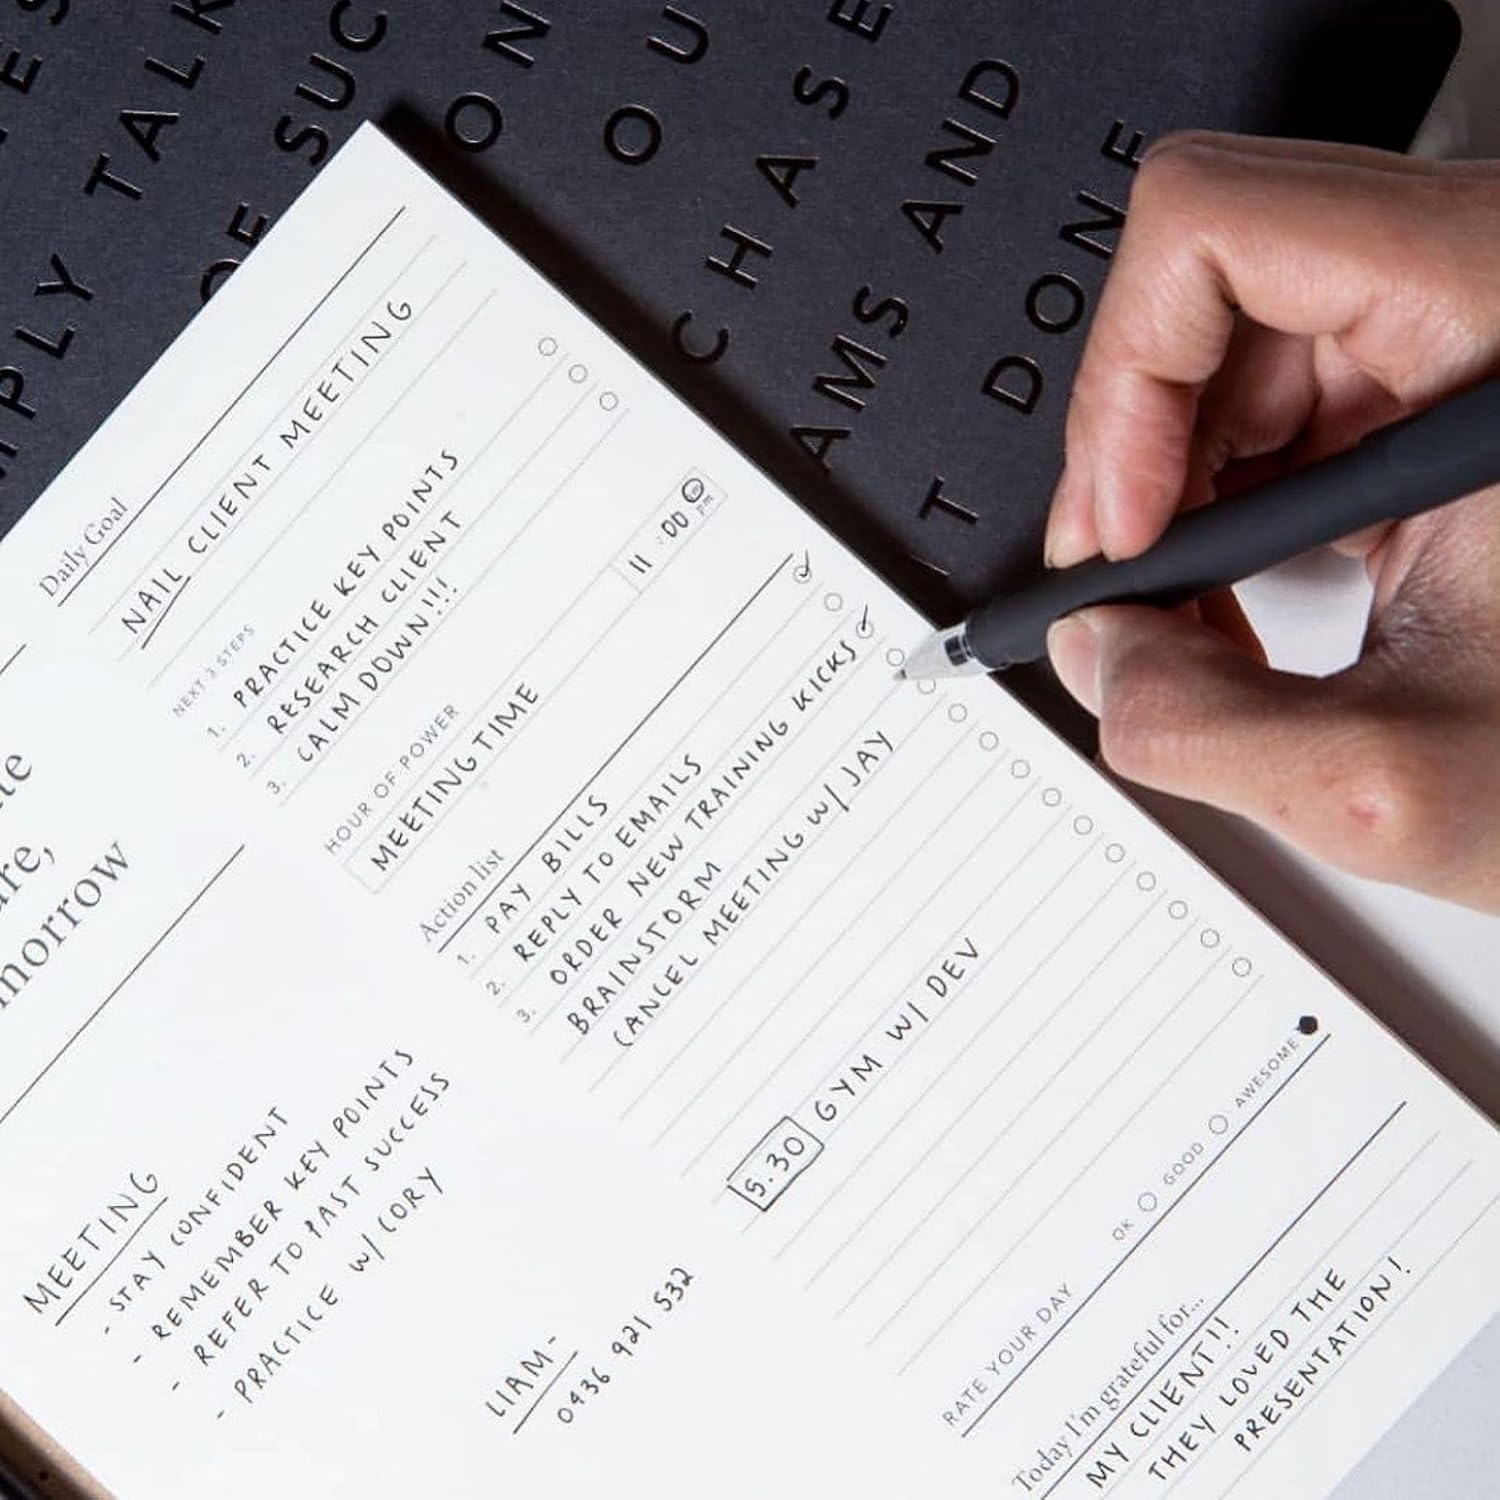 TALK
OF SUC
ON
OU
CHASE
AMS AND
T DONE
morrow
Daily Goal
NAIL CLIENT MEETING
NEXT 3 STEPS
1. PRACTICE KEY POINTS
2. RESEARCH CLIENT
3. CALM DOWN!!!
HOUR OF POWER
MEETING TIME 11 :00 am pm
Action list
1. PAY BILLS
2. REPLY TO EMAILS
3. ORDER NEW TRAINING KICKS
BRAINSTORM
CANCEL MEETING W/ JAY
5.30 GYM W/ DEV
RATE YOUR DAY OK GOOD AWESOME
Today I'm grateful for...
MY CLIENT!!
THEY LOVED THE
PRESENTATION!
MEETING
- STAY CONFIDENT
- REMEMBER KEY POINTS
- REFER TO PAST SUCCESS
- PRACTICE W/ CORY
LIAM-
0436 921 532